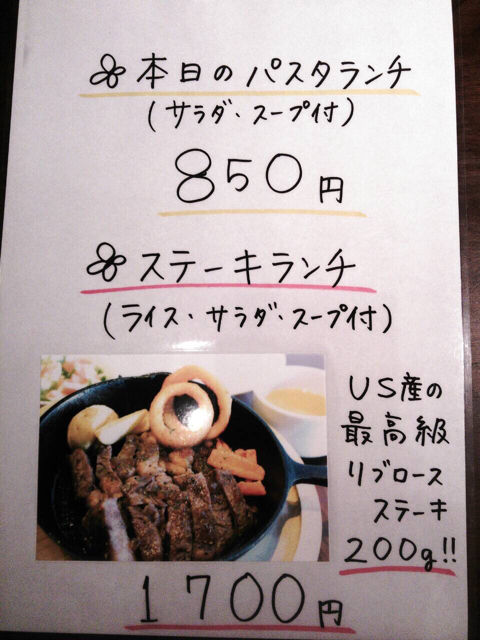 本日のパスタランチ
(サラダ・スープ付)
850円
ステーキランチ
(ライス・サラダ・スープ付)
US産の
最高級
リブロース
ステーキ
200g!!
1700円